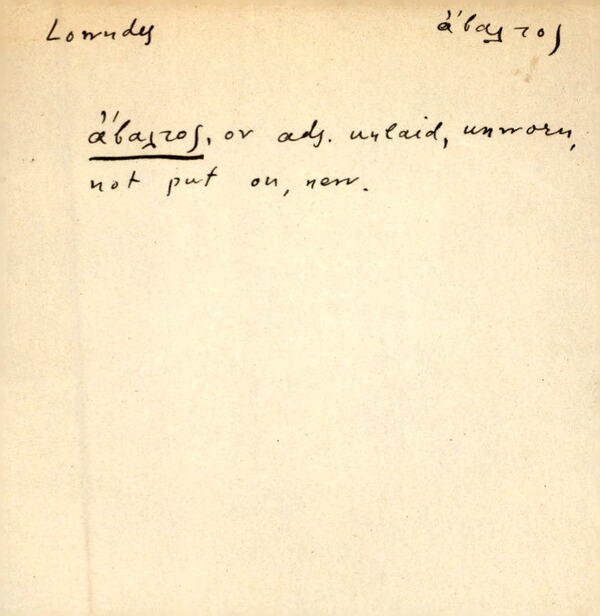 Lowndes ἄβαλτος
ἄβαλτος, ον adj. unlaid, unworn,
not put on, new.